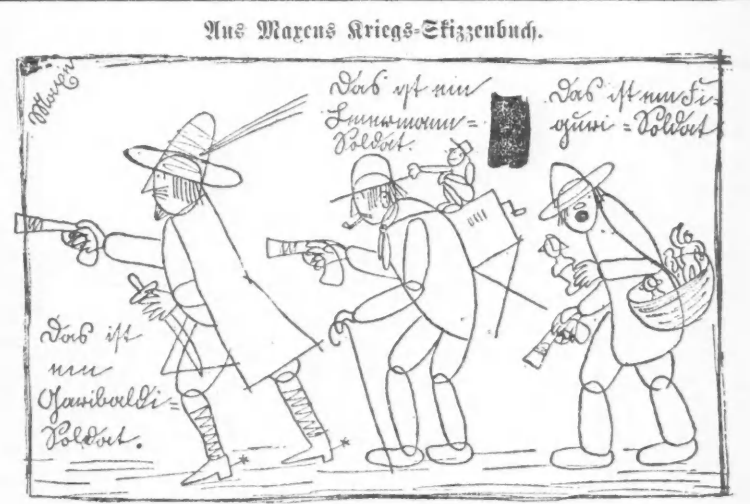 Aus Maxens Kriegs=Skizzenbuch.
Maxen
Das ist ein
Leiermann=
Soldat.
Das ist ein Fi=
guri=Soldat
Das ist
ein
Garibaldi=
Soldat.